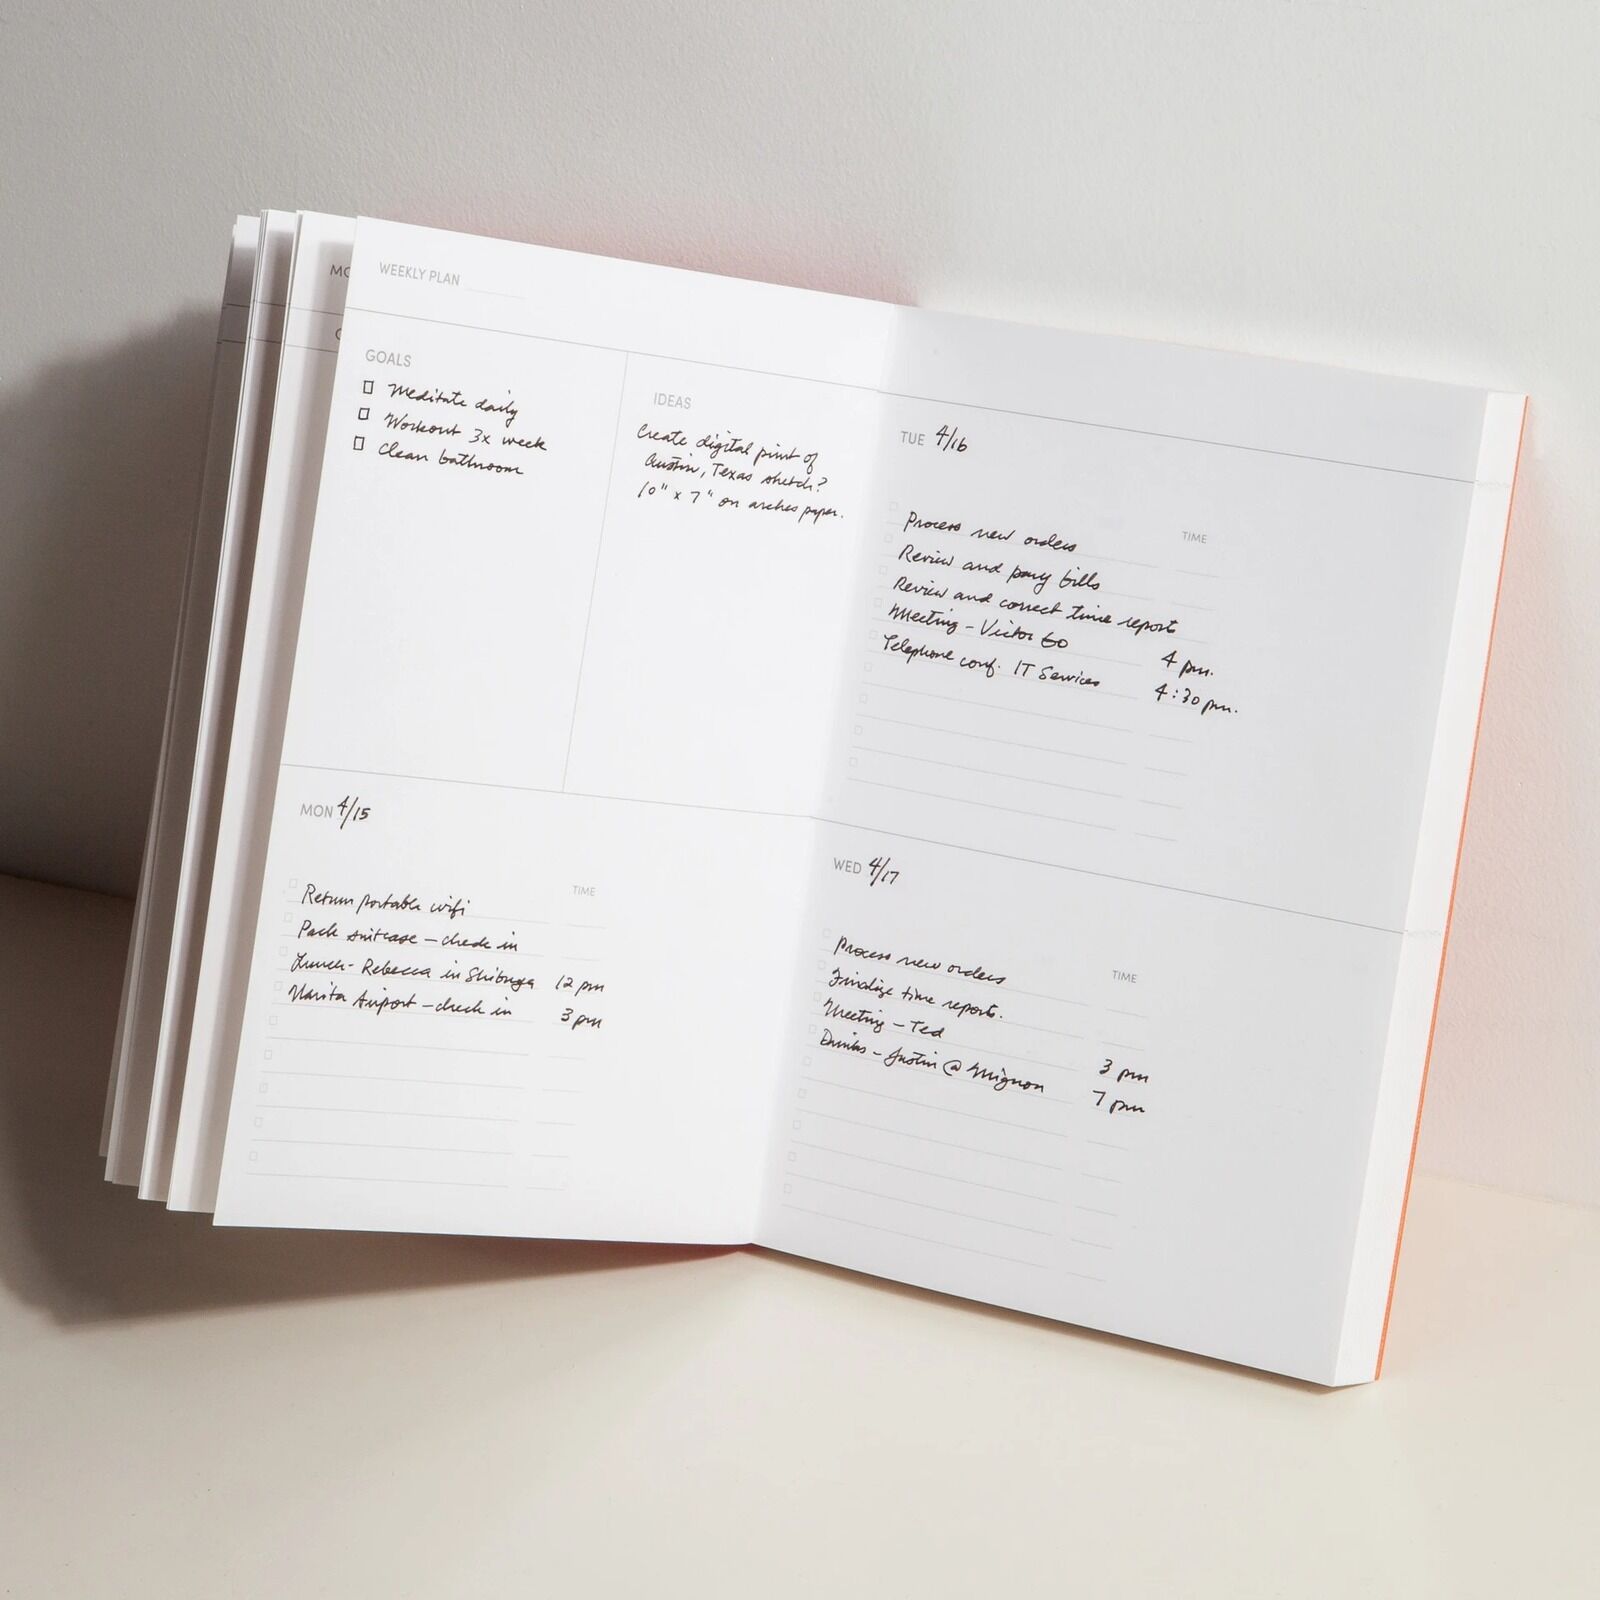 MO
WEEKLY PLAN
GOALS
Meditate daily
Workout 3x week
Clean bathroom
IDEAS
Create digital print of
Austin, Texas sketch?
10" x 7" on arches paper.
MON 4/15
TIME
Return portable wifi
Pack suitcase - check in
Lunch - Rebecca in Shibuya 12 pm
Narita Airport - check in 3 pm
TUE 4/16
TIME
Process new orders
Review and pay bills
Review and correct time reports
Meeting - Victor 4 pm.
Telephone conf. IT Services 4:30 pm.
WED 4/17
TIME
Process new orders
Finalize time reports.
Meeting - Ted 3 pm
Drinks - Justin @ Mignon 7 pm